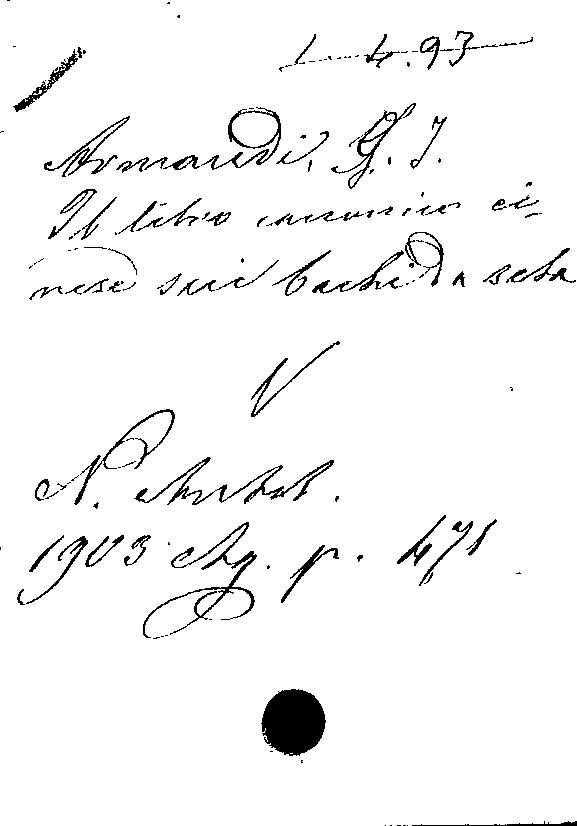 1 4.93
Armandi, G. J.
Il libro canonico ci-
nese sui bachi da seta
V
N. Antol.
1903 Ag. p. 471